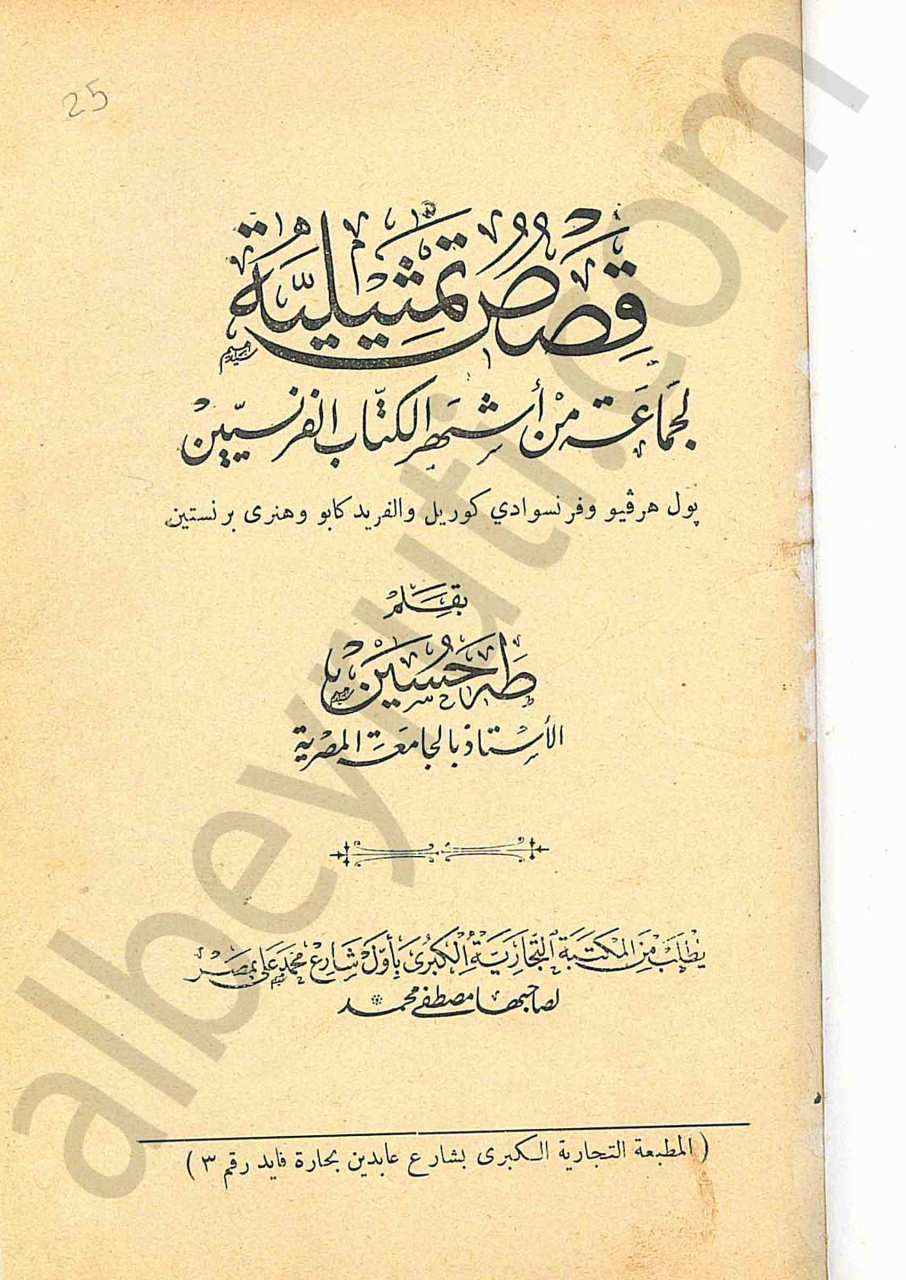 25
قصص تمثيلية
لجماعة من أشهر الكتّاب الفرنسيّين
پول هرڤيو وفرنسوادي كوريل والفريد كابو وهنرى برنستين
بقلم
طه حسين
الأستاذ بالجامعة المصرية
يطلب من المكتبة التجارية الكبرى بأول شارع محمد علي بمصر
لصاحبها مصطفى محمد
( المطبعة التجارية الكبرى بشارع عابدين بحارة فايد رقم ٣ )
albeyruti.com